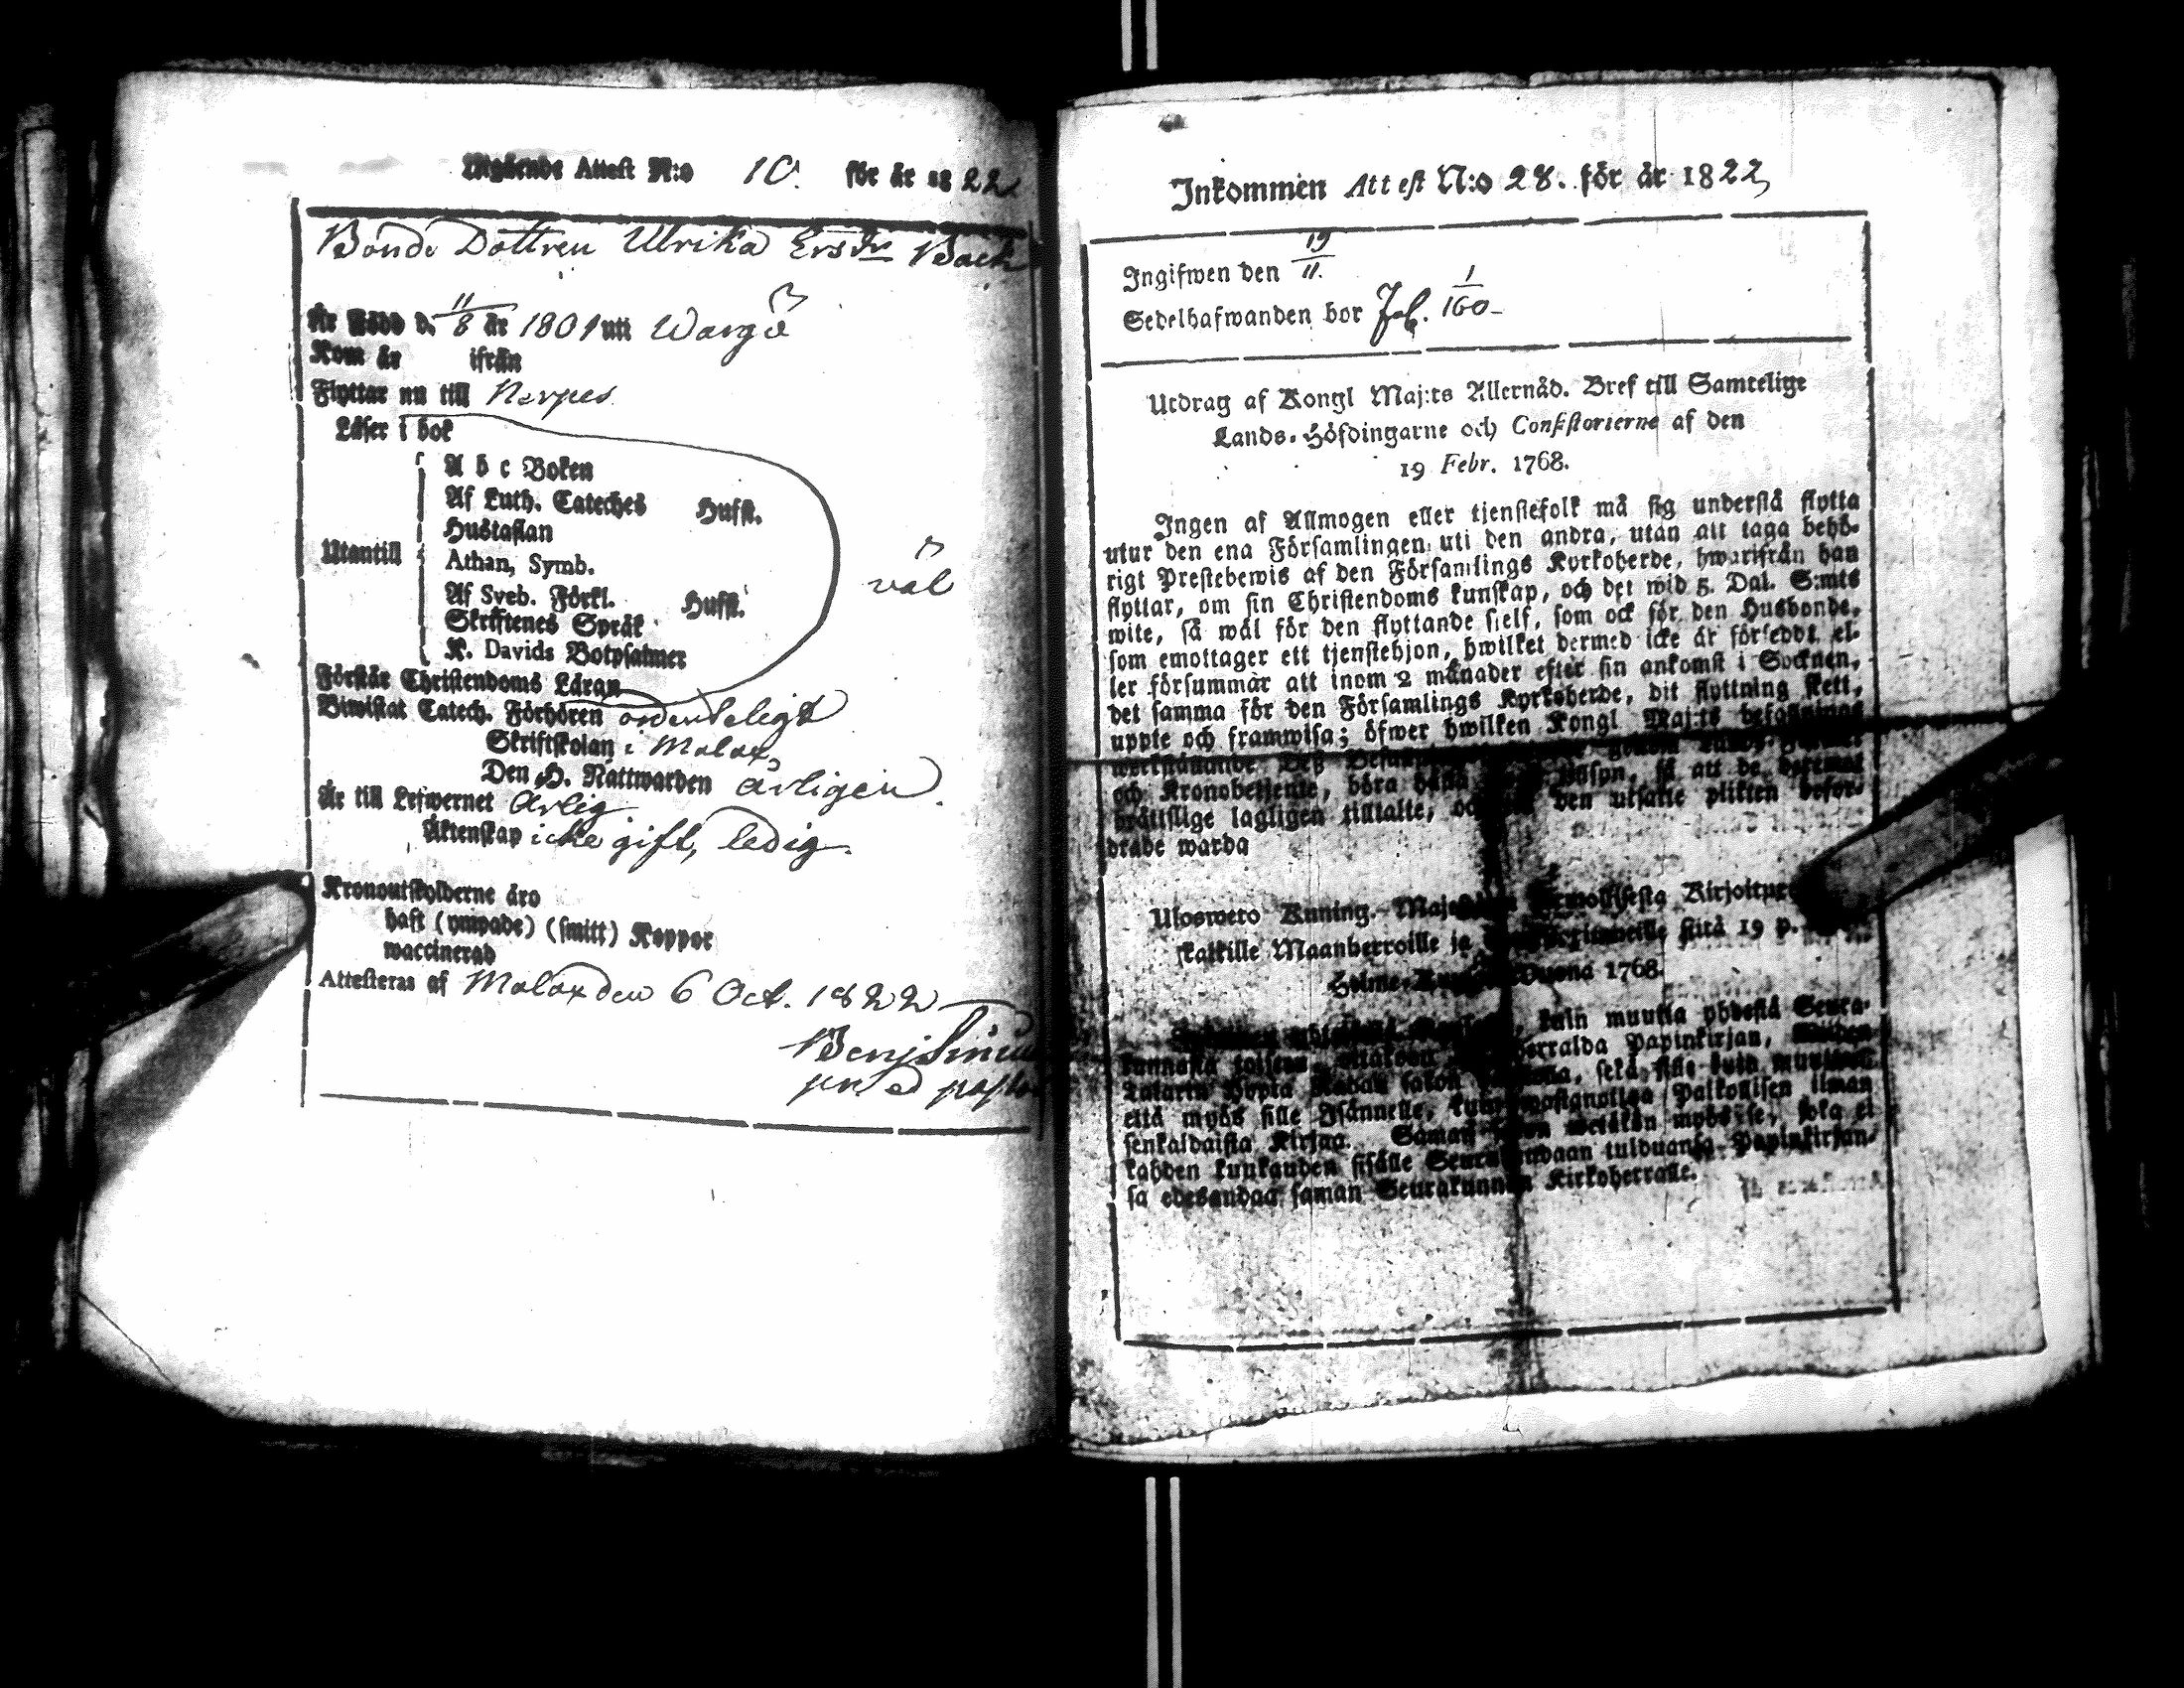 Utgående Attest N:o 10. för år 1822
Bonde Dottren Ulrika Ersdr Back
Är Född d. 11/8 år 1801 uti Wargö
Kom är ifrån
Flyttar nu till Nerpes
Läser i bok
A b c Boken
Af Luth. Cateches Hufst.
Hustaflan
Utantill Athan, Symb.
väl
Af Sveb. Förkl. Hufst.
Skriftenes Språk
K. Davids Botpsalmer
Förstår Christendoms Läran
Biwistat Catech. Förhören ordenteligt
Skriftskolan i Malax,
Den H. Nattwarden årligen.
Är till Lefwernet Ärlig
Äktenskap icke gift, ledig.
Kronoutskylderne äro
haft (ympade) (smitt) Koppor
waccinerad
Attesteras af Malax den 6 Oct. 1822
Benj
Inkommen Attest N:o 28. för år 1822,
Ingifwen den 19/11.
Sedelhafwanden bor Fol. 1/160
Utdrag af Kongl Maj:ts Allernåd. Bref till Samtelige
Lands-Höfdingarne och Consistorierne af den
19 Febr. 1768.
Ingen af Allmogen eller tjenstefolk må sig understå flytta
utur den ena Församlingen uti den andra, utan att taga behö-
rigt Prestebewis af den Församlings Kyrkoherde, hwarifrån han
flyttar, om sin Christendoms kunskap, och det wid 5. Dal. S:mts
wite, så wäl för den flyttande sjelf, som ock för den Husbonde,
som emottager ett tjenstehjon, hwilket dermed icke är förseddt el-
ler försummar att inom 2 månader efter sin ankomst i Socknen,
det samma för den Församlings Kyrkoherde, dit flyttning skett,
uppte och framwisa; öfwer hwilken Kongl Maj:ts befallnings
och Kronobetjente, böra hålla så att de deremot
brättslige lagligen tilltalte, och den utsatte plikten beford-
drade warda
Ulosweto Kuning. Kirjoitu
kaikille Maanherroille ja sitä 19 p.
Helme 1768.
kuin muulla yhdestä Seura-
kunnasta Papinkirjan,
sekä
että myös sille Isännelle, Palkollisen ilman
senkaldaista Kirjaa. Saman myös se, joka ei
kahden kuukauden sisälle tulduansa Papinkirjan-
sa edesandaa saman Seurakunnan Kirkoherralle.